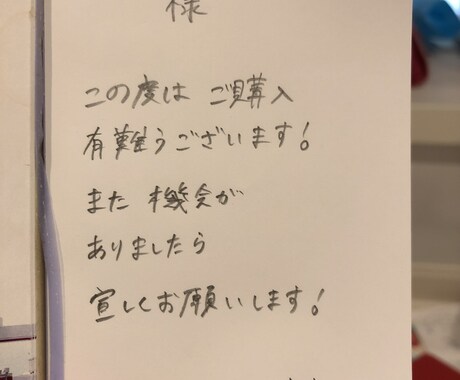 様
この度は ご購入
有難うございます!
また 機会が
ありましたら
宜しくお願いします!